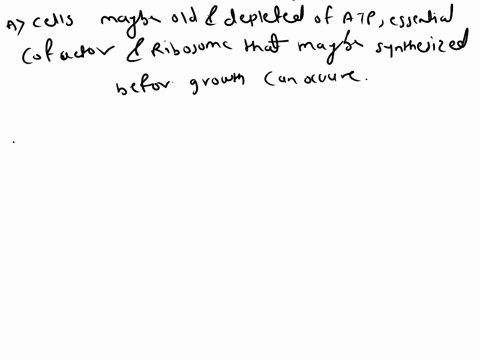 A) cells maybe old & depleted of ATP, essential
Cofactor & Ribosome that maybe synthesized
befor growth can occure.